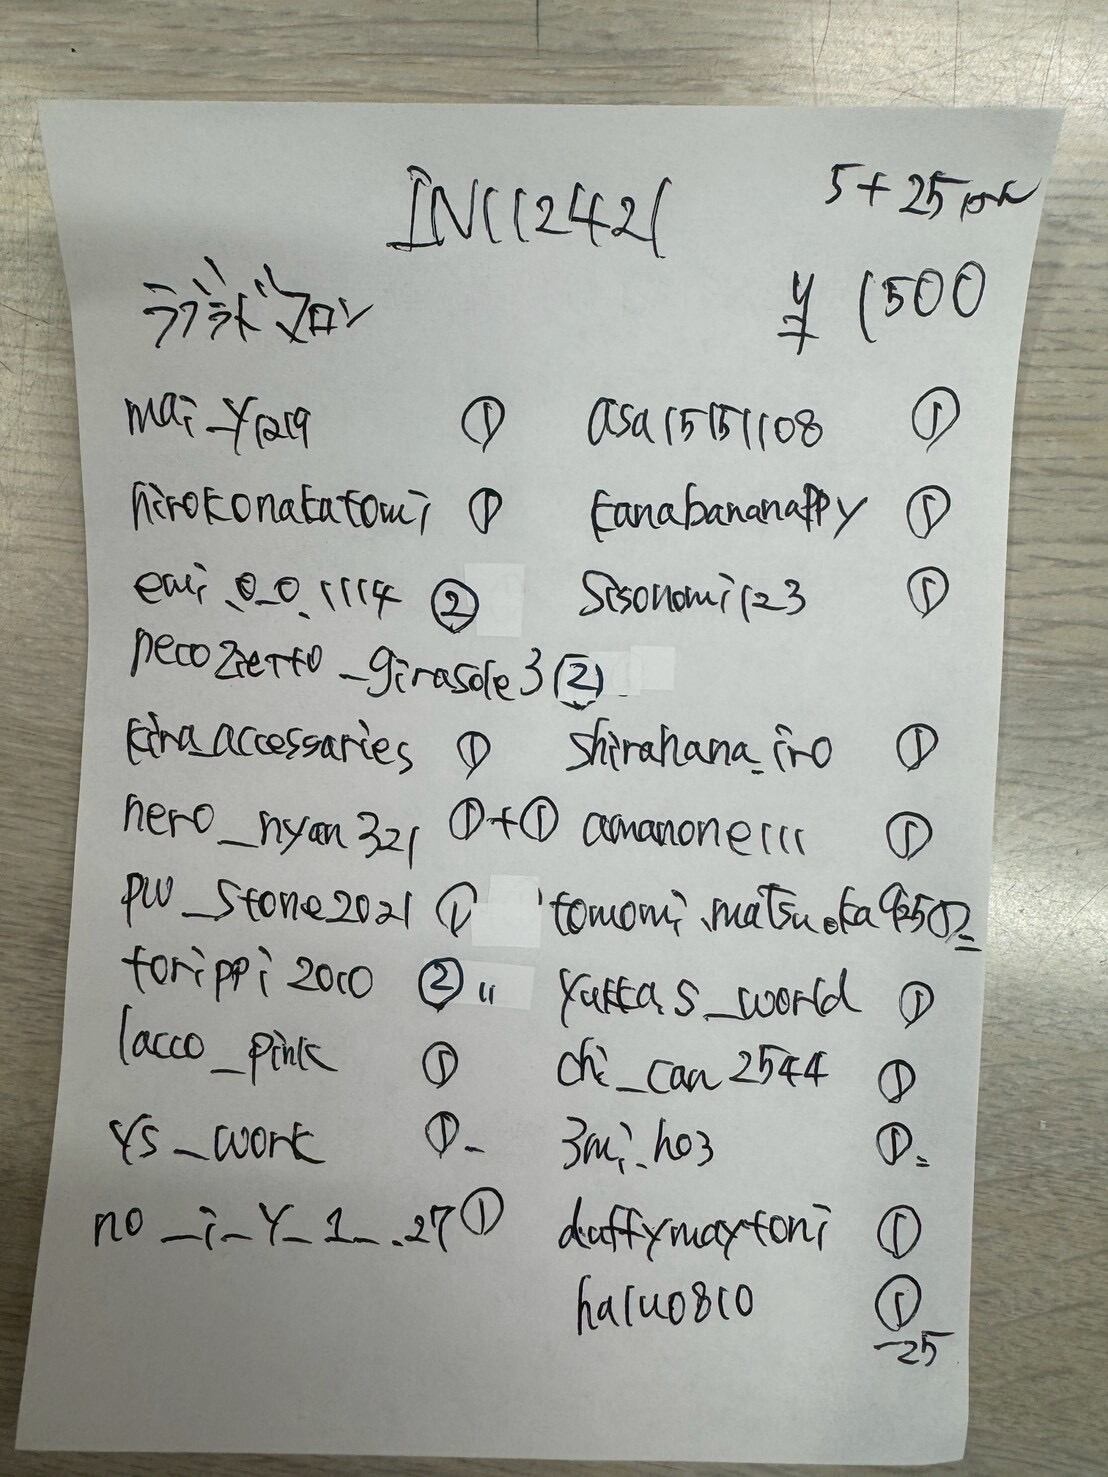 IN112421
5+25pk
ラブラドマロン
¥1500
mai_y1219 ① asa15151108 ①
hirokonakatomi ① kanabananappy ①
emi.0_0.1114 ② sisonomi123 ①
necozietto_girasole3 ②
kira_accessaries ① shirahana_iro ①
nero_nyan321 ①+① amanone111 ①
pw_stone2021 ① tomomi.matsuoka925 ①
torippi2010 ② yukka.s_world ①
lacco_pink ① chi_can2544 ①
ys_work ① 3mi.ho3 ①
no_i_y_1_.27 ① duffymaytoni ①
haru0810 ①
25